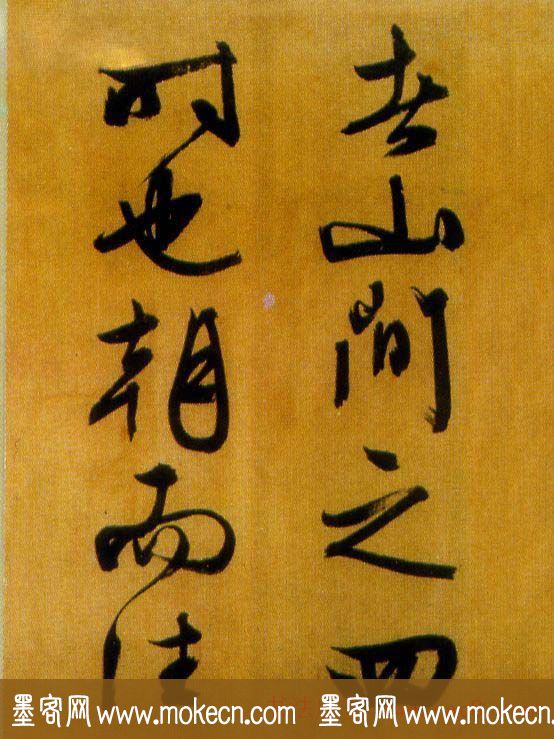 者山間之四
时也朝而往
墨客网 www.mokecn.com 墨客网 www.mokecn.com